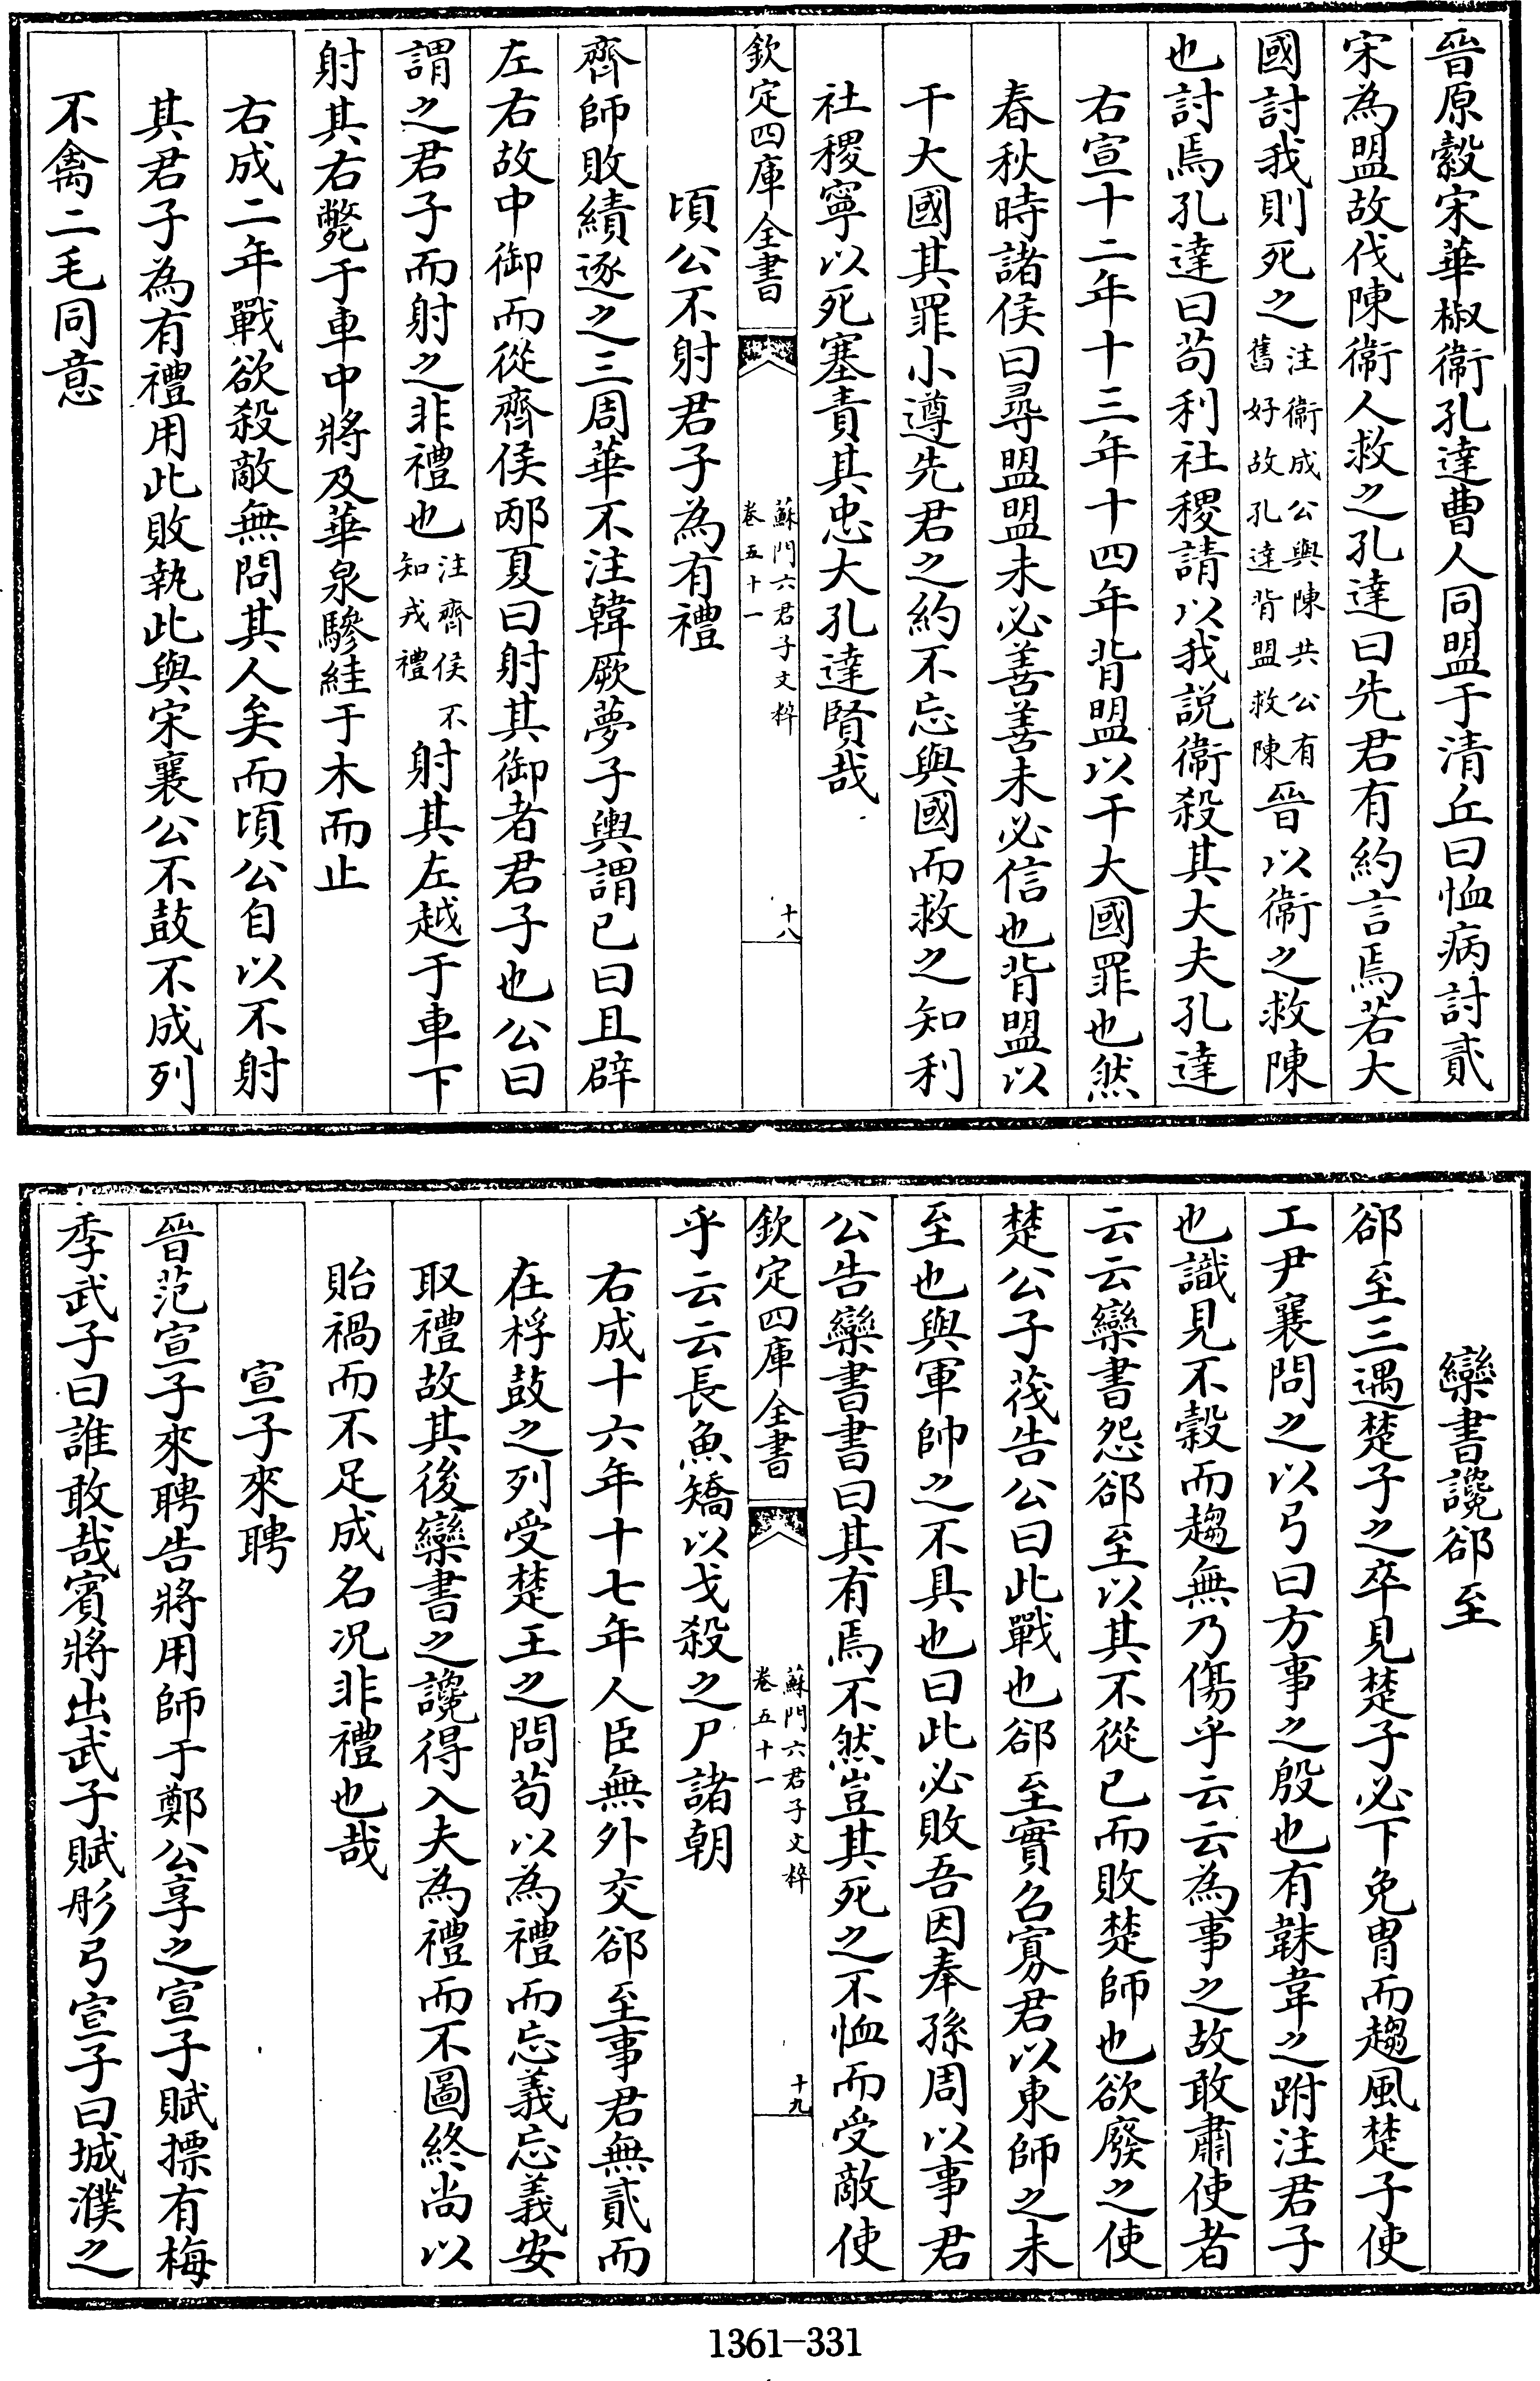 晉原縠宋華椒衞孔達曹人同盟于清丘曰恤病討貳
宋為盟故伐陳衞人救之孔達曰先君有約言焉若大
國討我則死之注衞成公與陳共公有舊好故孔達背盟救陳晉以衞之救陳
也討焉孔達曰茍利社稷請以我説衞殺其大夫孔達
右宣十二年十三年十四年背盟以干大國罪也然
春秋時諸侯曰尋盟盟未必善善未必信也背盟以
干大國其罪小遵先君之約不忘與國而救之知利
社稷寧以死塞責其忠大孔達賢哉
欽定四庫全書
蘇門六君子文粹
卷五十一
十八
頃公不射君子為有禮
齊師敗績逐之三周華不注韓厥夢子輿謂已曰且辟
左右故中御而從齊侯邴夏曰射其御者君子也公曰
謂之君子而射之非禮也注齊侯不知戎禮射其左越于車下
射其右斃于車中將及華泉驂絓于木而止
右成二年戰欲殺敵無問其人矣而頃公自以不射
其君子為有禮用此敗執此與宋襄公不鼓不成列
不禽二毛同意
欒書讒郤至
郤至三遇楚子之卒見楚子必下免胄而趨風楚子使
工尹襄問之以弓曰方事之殷也有韎韋之跗注君子
也識見不穀而趨無乃傷乎云云為事之故敢肅使者
云云欒書怨郤至以其不從已而敗楚師也欲廢之使
楚公子茷告公曰此戰也郤至實召寡君以東師之未
至也與軍帥之不具也曰此必敗吾因奉孫周以事君
公告欒書書曰其有焉不然豈其死之不恤而受敵使
欽定四庫全書
蘇門六君子文粹
卷五十一
十九
乎云云長魚矯以戈殺之尸諸朝
右成十六年十七年人臣無外交郤至事君無貳而
在桴鼓之列受楚王之問茍以為禮而忘義忘義安
取禮故其後欒書之讒得入夫為禮而不圖終尚以
貽禍而不足成名况非禮也哉
宣子來聘
晉范宣子來聘告將用師于鄭公享之宣子賦摽有梅
季武子曰誰敢哉賓將出武子賦彤弓宣子曰城濮之
1361-331